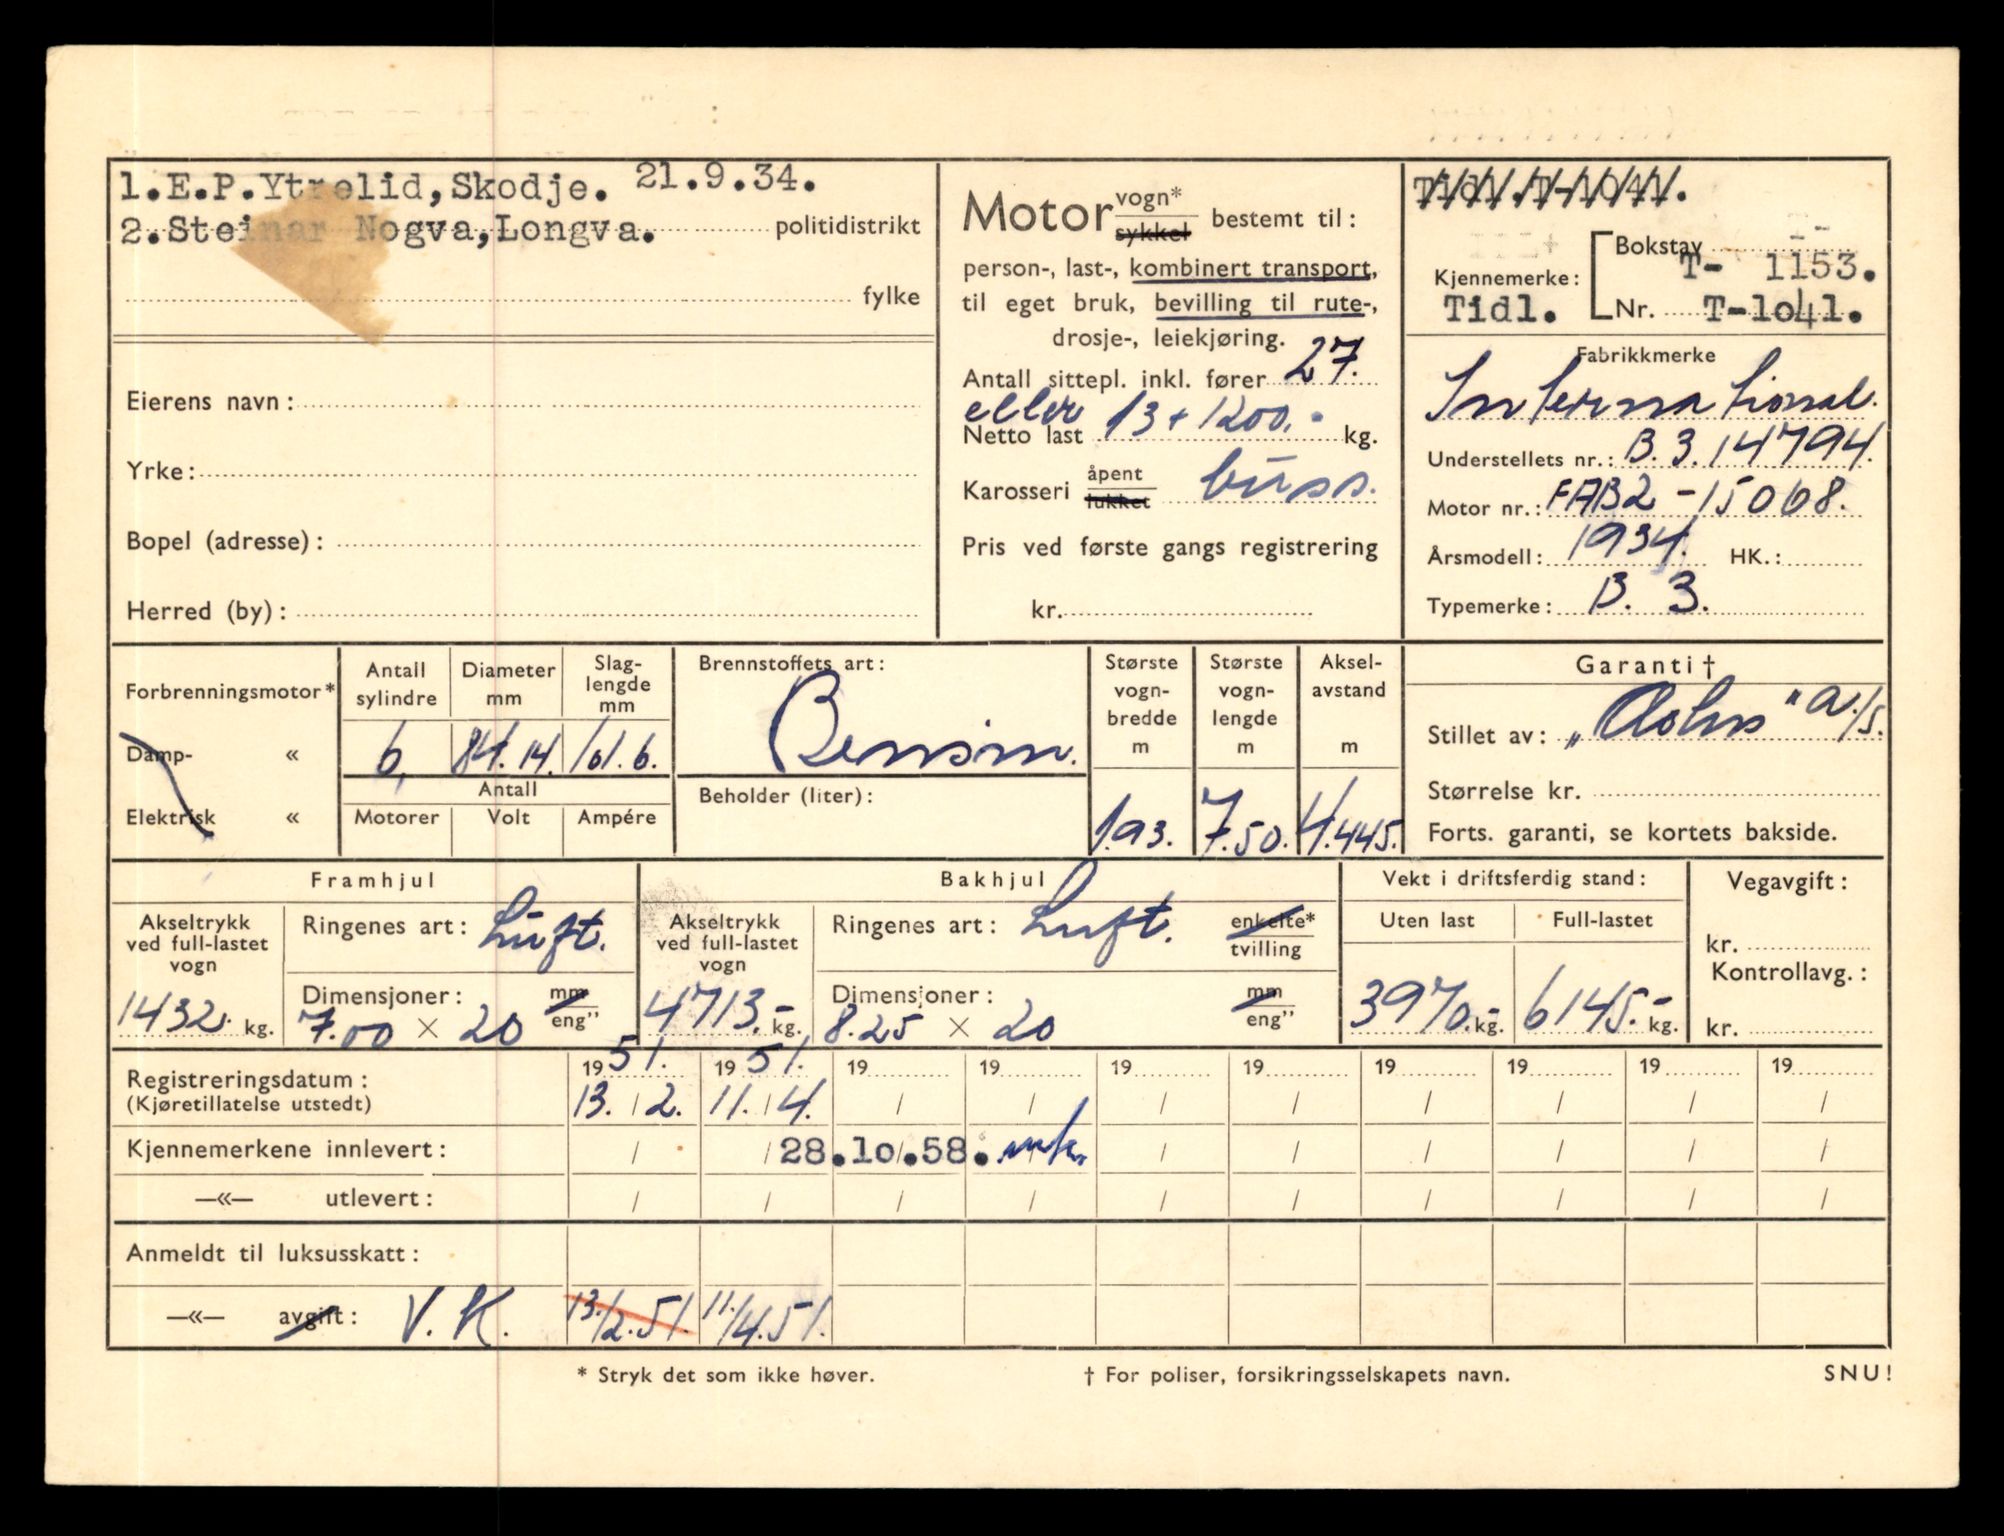 1.E.P.Ytrelid,Skodje. 21.9.34.
2.Steinar Nogva,Longva. politidistrikt
fylke
Eierens navn:
Yrke:
Bopel (adresse):
Herred (by):
Motor vogn* sykkel bestemt til:
person-, last-, kombinert transport,
til eget bruk, bevilling til rute-,
drosje-, leiekjøring.
Antall sittepl. inkl. fører 27.
eller
Netto last 13 + 1200.- kg.
Karosseri åpent lukket buss.
Pris ved første gangs registrering
kr.
Tidl.T-1041.
Kjennemerke: Bokstav T- 1153.
Tidl. Nr. T-1041.
Fabrikkmerke
International.
Understellets nr.: B.3.14794.
Motor nr.: FAB2 - 15068.
Årsmodell: 1934. HK.:
Typemerke: B. 3.
Forbrenningsmotor*
Damp- «
Elektrisk «
Antall sylindre
6.
Diameter mm
84.14.
Slag-lengde mm
101.6.
Antall
Motorer Volt Ampére
Brennstoffets art:
Bensin.
Beholder (liter):
Største vogn-bredde m
1.93.
Største vogn-lengde m
7.50.
Aksel-avstand m
4.445.
Garanti †
Stillet av: " " A/S.
Størrelse kr.
Forts. garanti, se kortets bakside.
Framhjul
Akseltrykk ved full-lastet vogn
1432. kg.
Ringenes art: Luft.
Dimensjoner: mm eng"
7.00 × 20
Bakhjul
Akseltrykk ved full-lastet vogn
4713.- kg.
Ringenes art: Luft. enkelte* tvilling
Dimensjoner: mm eng"
8.25 × 20
Vekt i driftsferdig stand:
Uten last Full-lastet
3970.- kg. 6145.- kg.
Vegavgift:
kr.
Kontrollavg.:
kr.
Registreringsdatum: 1951. 1951. 19 19 19 19 19 19 19 19
(Kjøretillatelse utstedt) 13. / 2. 11. / 4. / / / / / / / /
Kjennemerkene innlevert: / / 28.10.58. / / / / / /
—«— utlevert: / / / / / / / / / /
Anmeldt til luksusskatt:
—«— avgift: V.K. 13./2.51. 11./4.51.
* Stryk det som ikke høver.
† For poliser, forsikringsselskapets navn.
SNU!